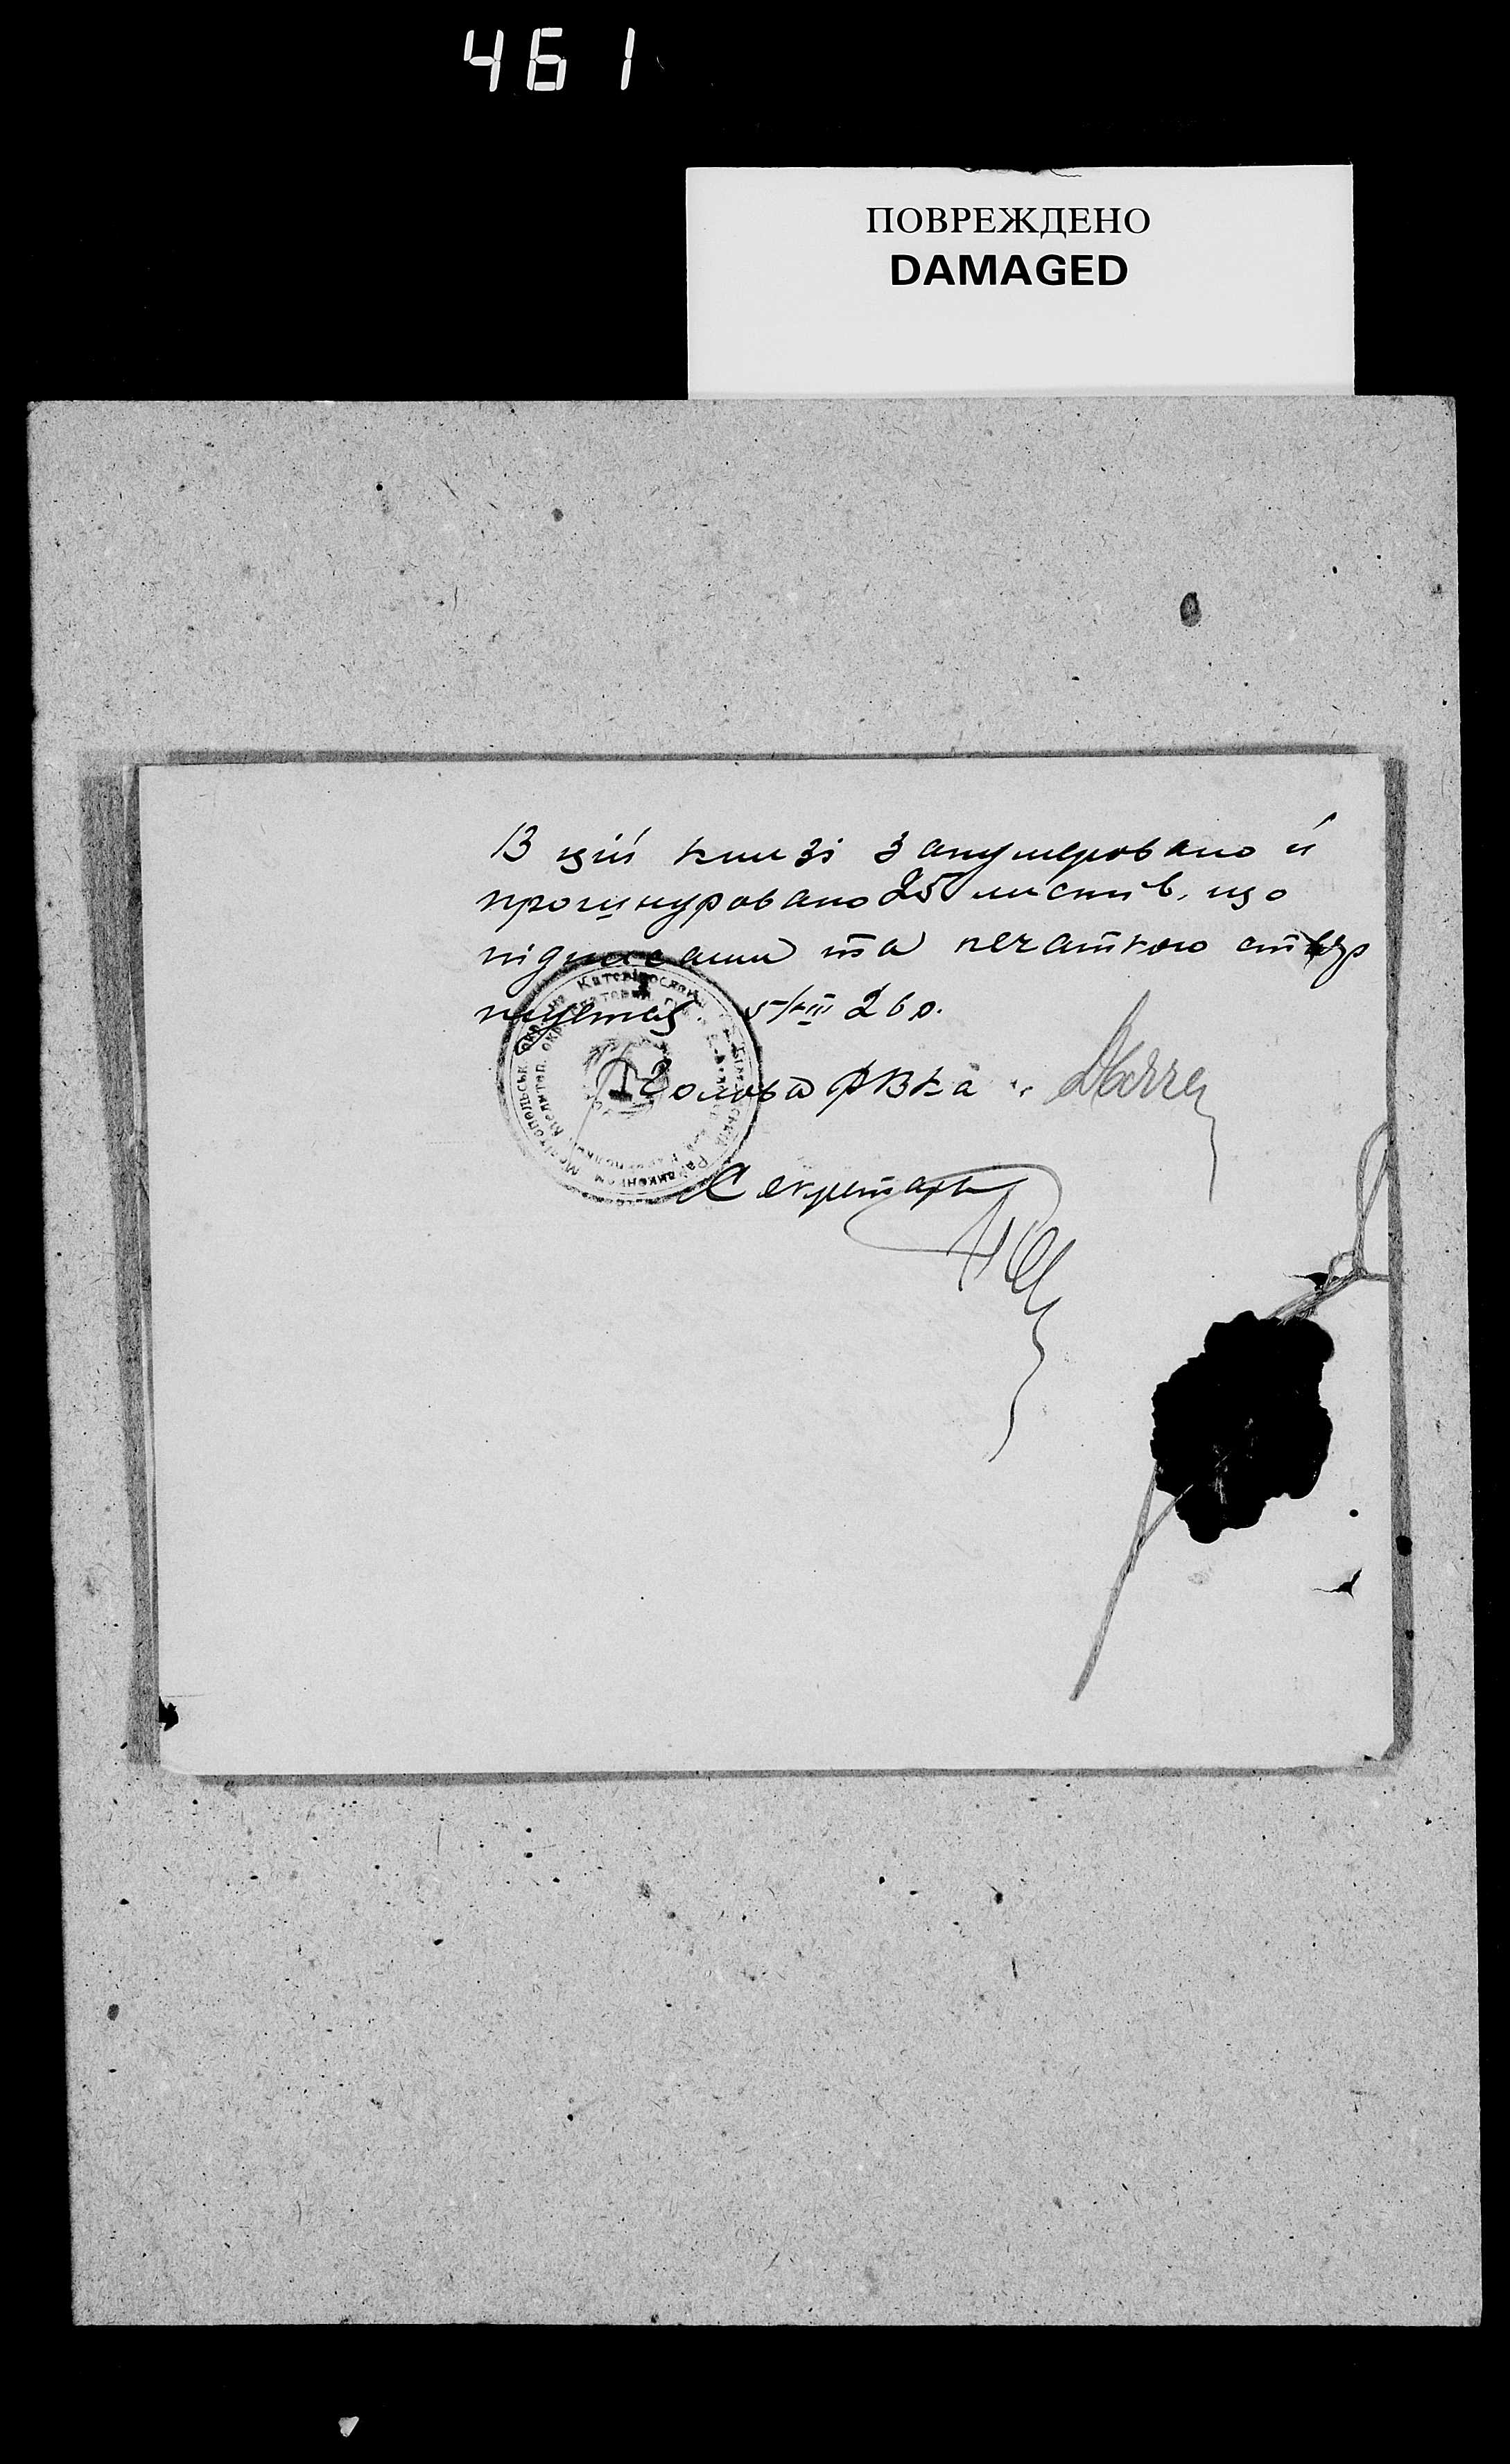 461
ПОВРЕЖДЕНО
DAMAGED
В цій книзі занумеровано й
прошнуровано 25 листів, що
підписами та печаткою ствер
жується 5/III 26 р.
Голова РВКа
Секретарь